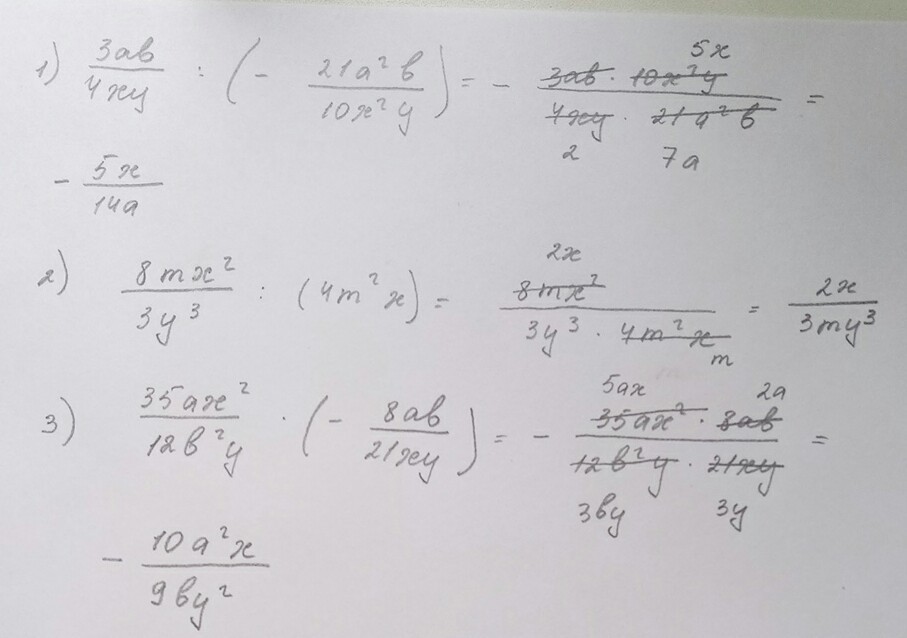 1) 3ab/4xy : (- 21a²b/10x²y) = - 3ab · 10x²y/4xy · 21a²b =
5x
2 7a
- 5x/14a
2) 8mx²/3y³ : (4m²x) = 8mx²/3y³ · 4m²x = 2x/3my³
2x
m
3) 35ax²/12b²y · (- 8ab/21xy) = - 35ax² · 8ab/12b²y · 21xy =
5ax 2a
3by 3y
- 10a²x/9by²